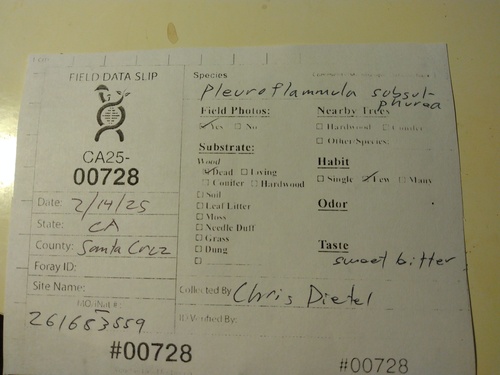 FIELD DATA SLIP
CA25-
00728
Date: 2/14/25
State: CA
County: Santa Cruz
Foray ID:
Site Name:
MO/iNat #:
261683559
#00728
Species
Pleuroflammula subsul-
phurea
Field Photos:
Yes No
Substrate:
Wood
Dead Living
Conifer Hardwood
Soil
Leaf Litter
Moss
Needle Duff
Grass
Dung
Nearby Trees
Hardwood Conifer
Other/Species:
Habit
Single Few Many
Odor
Taste
sweet bitter
Collected By Chris Dietel
ID Verified By:
#00728